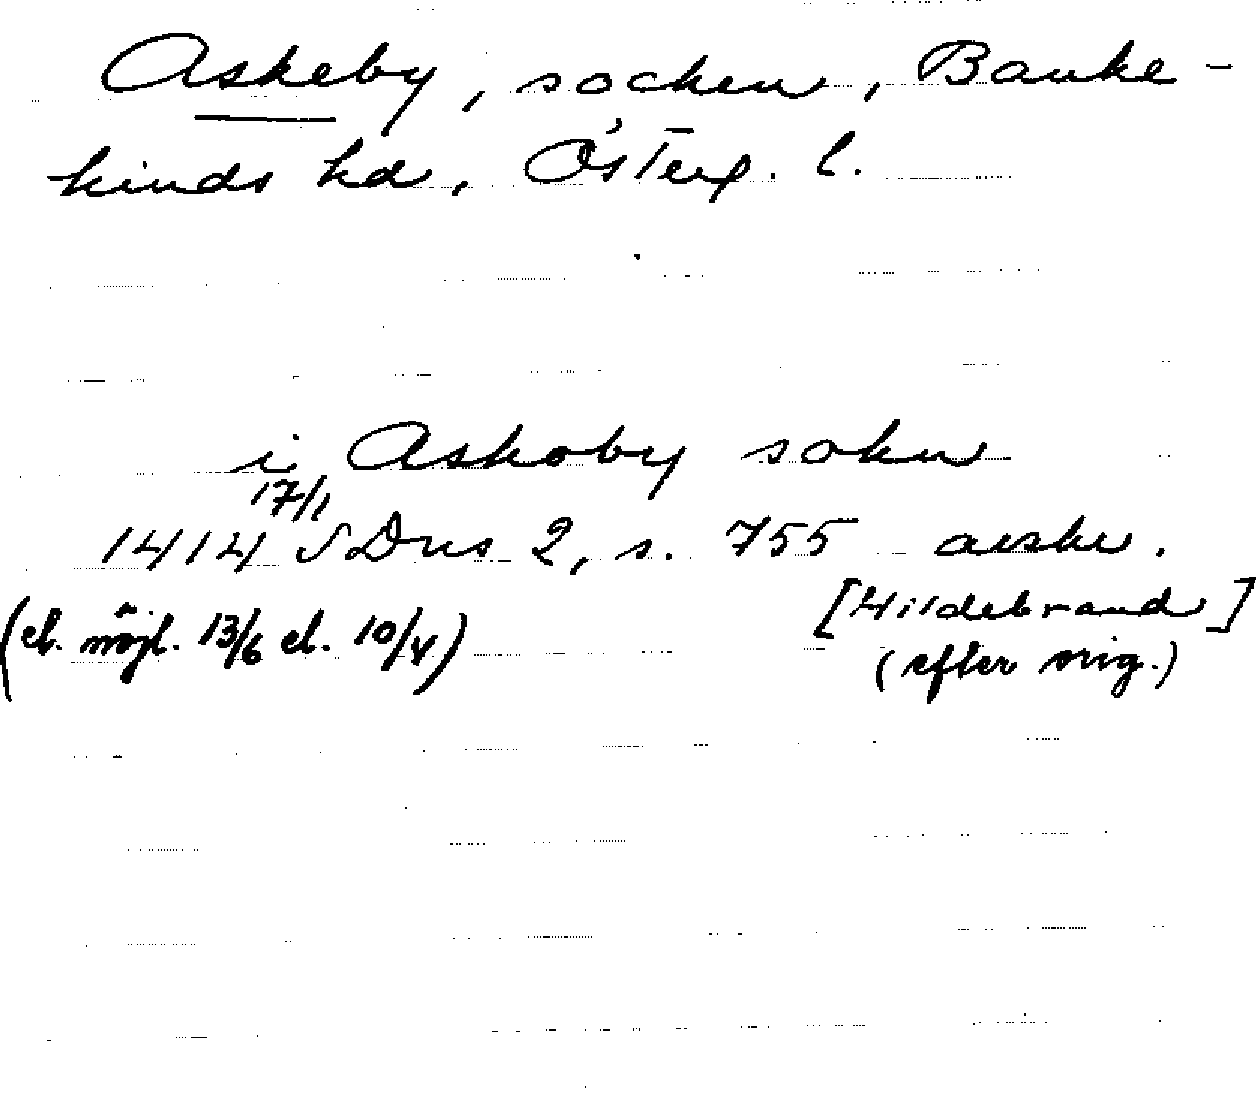 Askeby, socken, Banke-
kinds hd, Österg. l.
i Askoby sokn
17/1
1414 SDns 2, s. 755 avskr.
[Hildebrand]
(el. möjl. 13/6 el. 10/4)
(efter orig.)